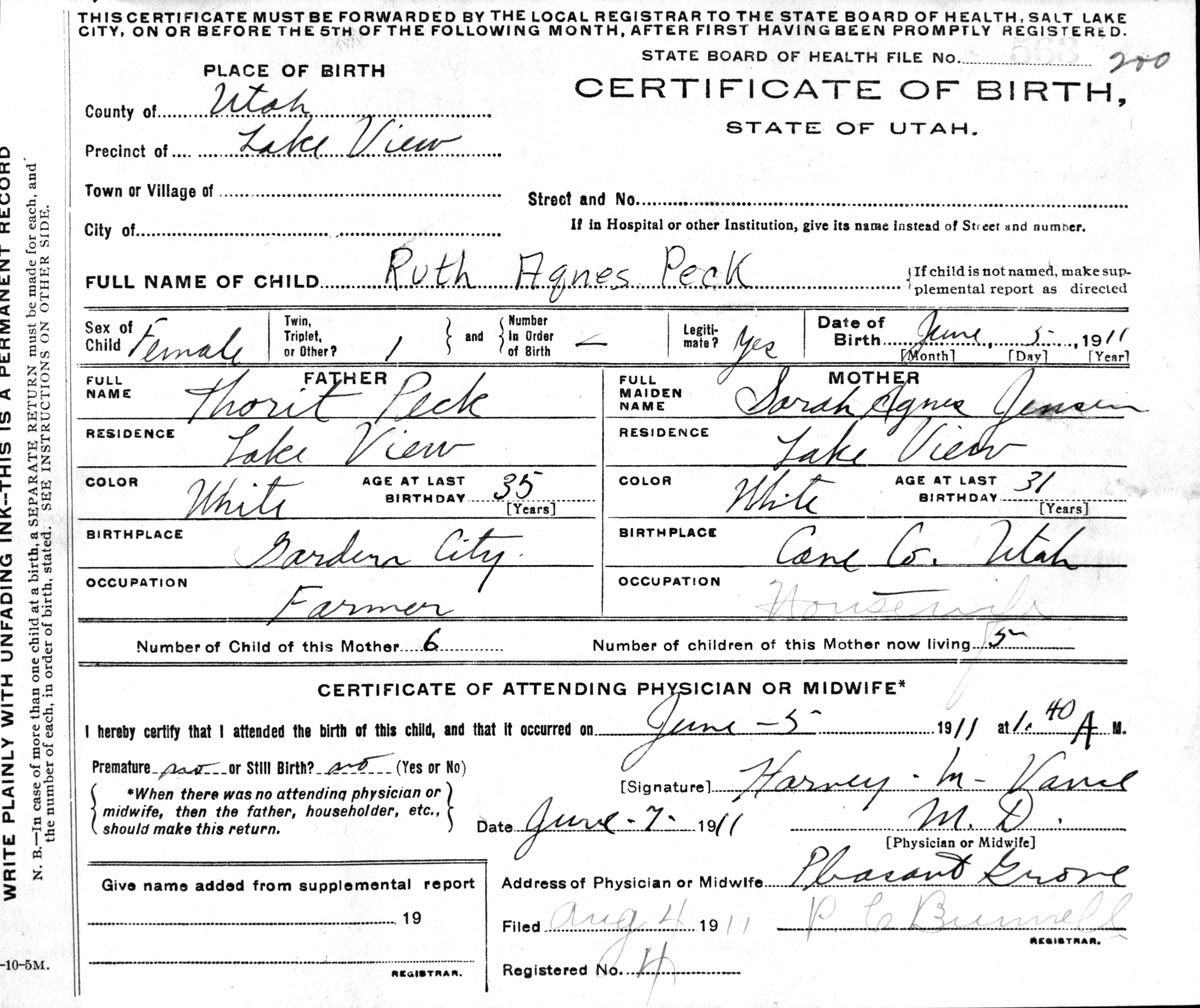 THIS CERTIFICATE MUST BE FORWARDED BY THE LOCAL REGISTRAR TO THE STATE BOARD OF HEALTH, SALT LAKE
CITY, ON OR BEFORE THE 5TH OF THE FOLLOWING MONTH, AFTER FIRST HAVING BEEN PROMPTLY REGISTERED.
STATE BOARD OF HEALTH FILE No. 200
PLACE OF BIRTH
CERTIFICATE OF BIRTH,
STATE OF UTAH.
County of Utah
Precinct of Lake View
Town or Village of
Street and No.
City of
If in Hospital or other Institution, give its name instead of Street and number.
FULL NAME OF CHILD Ruth Agnes Peck
{If child is not named, make sup-
plemental report as directed
Sex of Child Female
Twin, Triplet, or Other? 1
and
Number In Order of Birth —
Legiti-mate? Yes
Date of Birth June, 5, 1911
[Month] [Day] [Year]
FATHER
FULL NAME Thorit Peck
MOTHER
FULL MAIDEN NAME Sarah Agnes Jensen
RESIDENCE Lake View
RESIDENCE Lake View
COLOR White AGE AT LAST BIRTHDAY 35 [Years]
COLOR White AGE AT LAST BIRTHDAY 31 [Years]
BIRTHPLACE Garden City.
BIRTHPLACE Cane Co. Utah
OCCUPATION Farmer
OCCUPATION Housewife
Number of Child of this Mother 6
Number of children of this Mother now living 5
CERTIFICATE OF ATTENDING PHYSICIAN OR MIDWIFE*
I hereby certify that I attended the birth of this child, and that it occurred on June - 5 1911 at 1.40 A M.
Premature no or Still Birth? no (Yes or No)
[Signature] Harvey - M -
*When there was no attending physician or
midwife, then the father, householder, etc.,
should make this return.
Date June - 7 - 1911
M. D.
[Physician or Midwife]
Address of Physician or Midwife Pleasant Grove
Give name added from supplemental report
19
REGISTRAR.
Filed Aug 4 1911
P C
REGISTRAR.
Registered No. 4
WRITE PLAINLY WITH UNFADING INK--THIS IS A PERMANENT RECORD
N. B.—In case of more than one child at a birth, a SEPARATE RETURN must be made for each, and
the number of each, in order of birth, stated. SEE INSTRUCTIONS ON OTHER SIDE.
-10-5M.